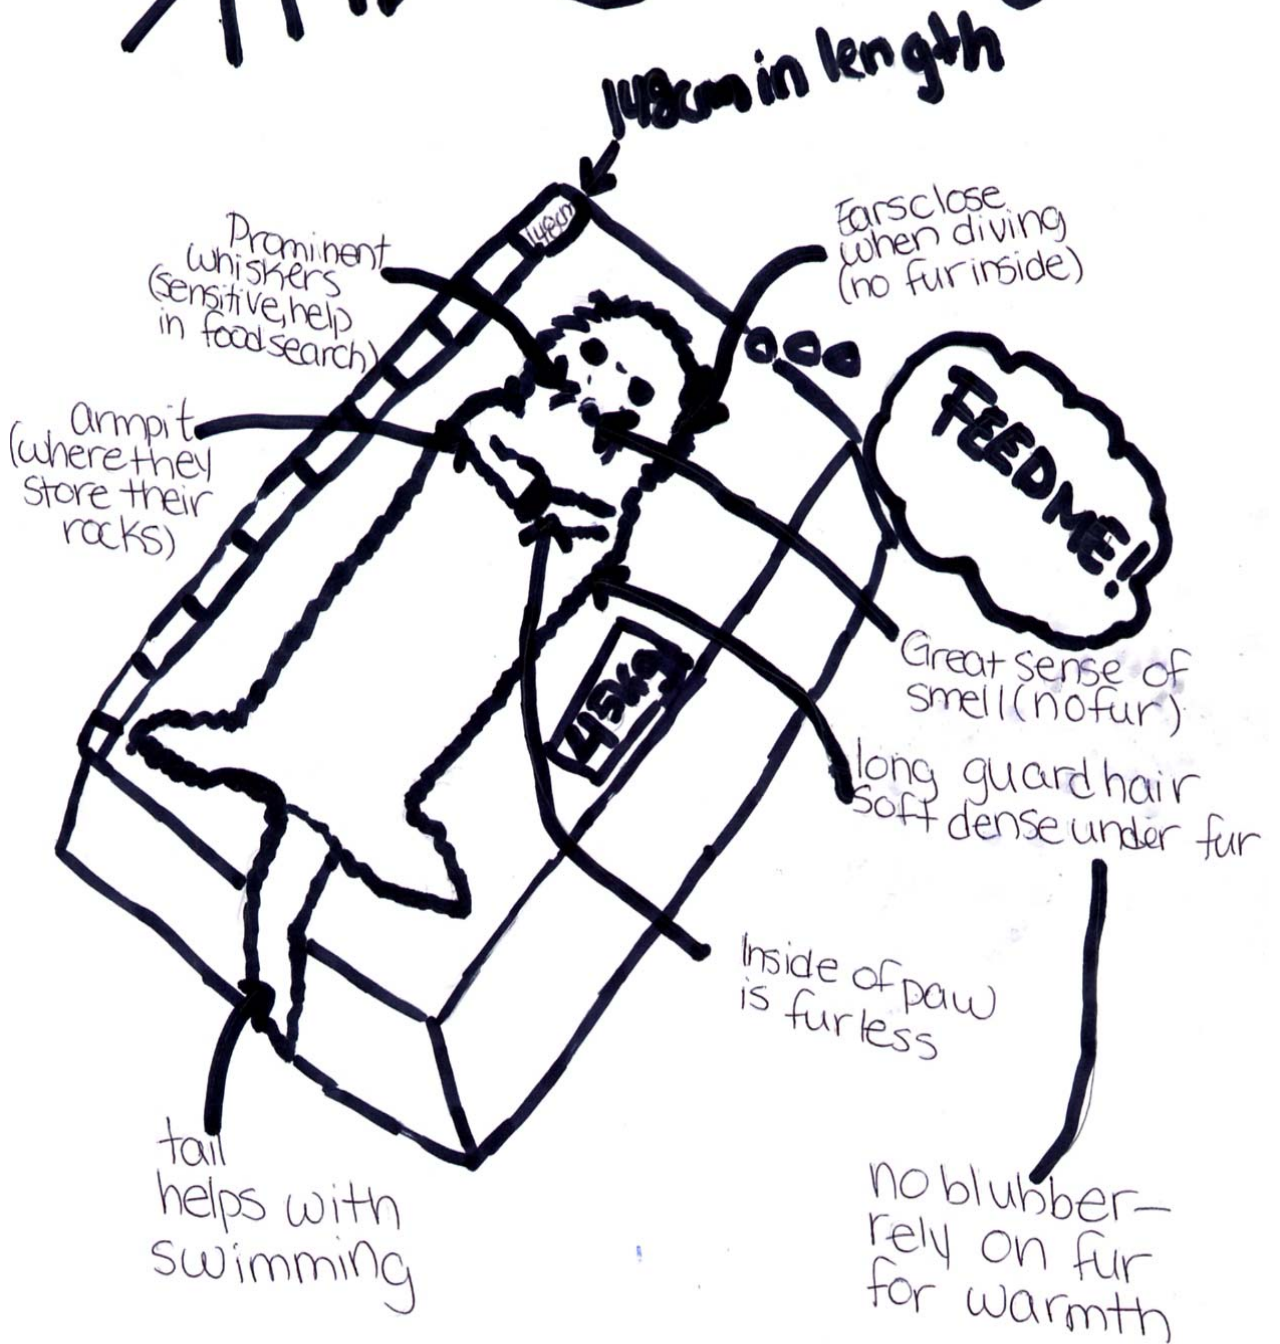 148cm in length
148cm
Prominent
whiskers
(sensitive, help
in food search)
Ears close
when diving
(no fur inside)
armpit
(where they
store their
rocks)
FEED ME!
45kg
Great sense of
smell (no fur)
long guard hair
soft dense under fur
Inside of paw
is furless
tail
helps with
swimming
no blubber-
rely on fur
for warmth